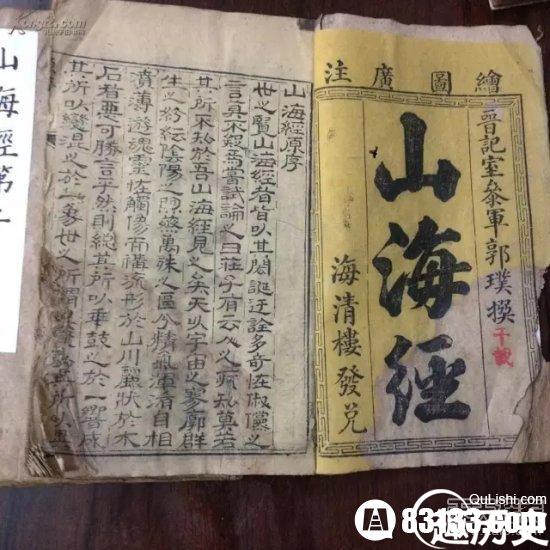 繪圖廣注
晉記室叅軍郭璞撰
山海經
海清樓發兌
山海經原序
世之覽山海經者皆以其閎誕迂誇多奇怪俶儻之
言莫不疑焉嘗試論之曰莊子有云人之所知莫若
其所不知於吾山海經見之矣夫以宇宙之寥廓群
生之紛紜陰陽之煦蒸萬殊之區分精氣渾淆自相
濆薄遊魂靈怪觸像而構流形於山川麗狀於木
石者惡可勝言乎然則總其所以乖鼓之於一響成
其所以變混之於一象世之所謂異
山海經第
QuLishi.com
趣历史
83133.com